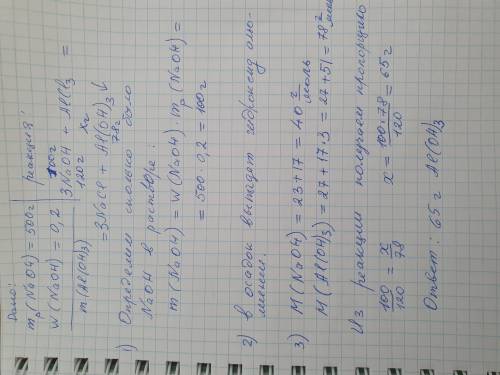 Дано:
mр(NaOH) = 500г
w(NaOH) = 0,2
m(Al(OH)3)
реакция:
100г xг
3NaOH + AlCl3 =
120г
= 3NaCl + Al(OH)3↓
78г
1) Определим сколько было
NaOH в растворе:
m(NaOH) = w(NaOH)·mр(NaOH) =
= 500·0,2 = 100г
2) в осадок выпадет гидроксид алю-
миния.
3) M(NaOH) = 23+17 = 40 г/моль
M(Al(OH)3) = 27+17·3 = 27+51 = 78 г/моль
Из реакции получаем пропорцию
100/120 = x/78 x = 100·78/120 = 65г
Ответ: 65г Al(OH)3